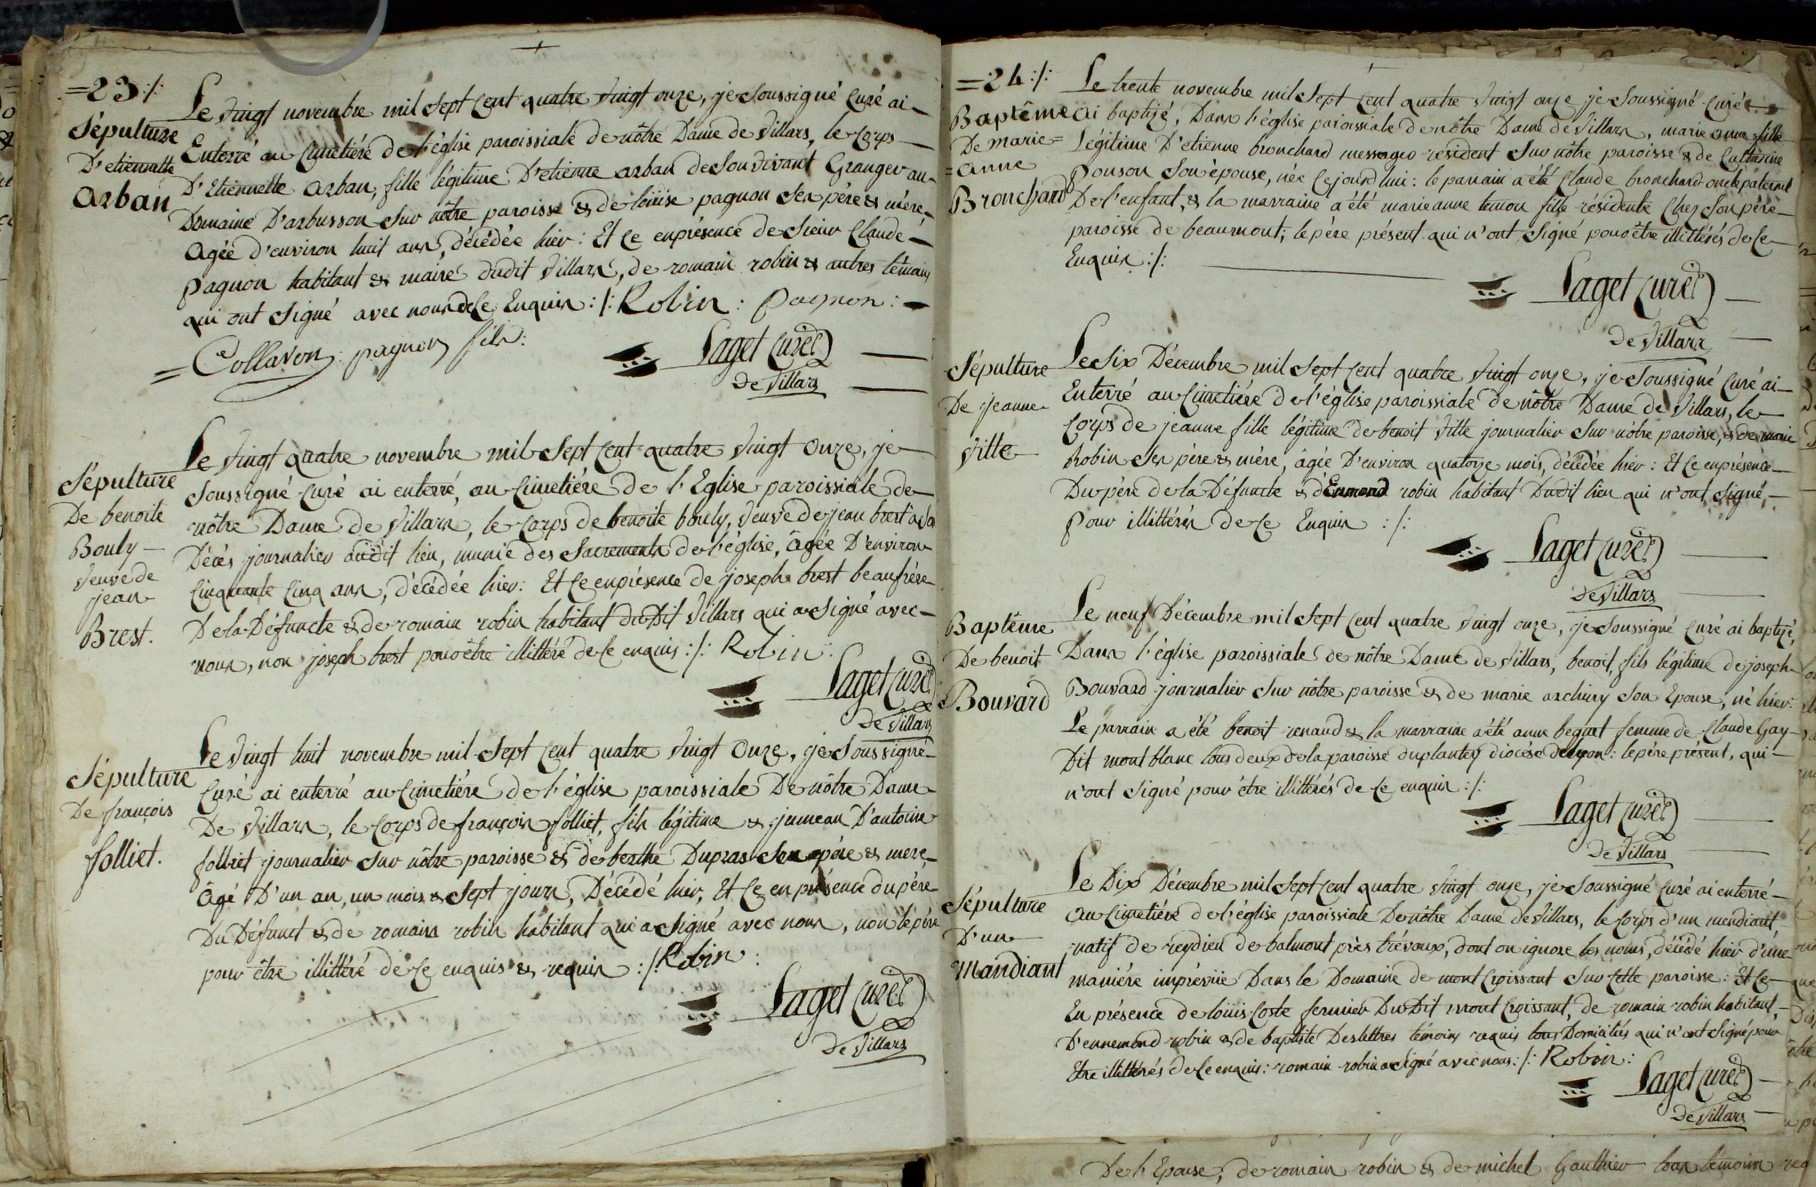 =23:/:
Sépulture
D'etiennette
Arban
Le vingt novembre mil sept cent quatre vingt onze, je soussigné curé ai
Enterré au cimetiére de l'église paroissiale de nôtre Dame de Villars, le corps
D'Etiennette arban, fille légitime D'etienne arban de son vivant Granger au
Domaine D'arbusson sur nôtre paroisse & de loüise pagnon ses père & mère,
agée d'environ huit ans, décédée hier : Et ce en présence de sieur Claude
pagnon habitant & maire dudit Villars, de romain robin & autres témoins
qui ont signé avec nous de ce Enquis :/: Robin : pagnon :
= Collavon : pagnon fils :
Laget Curé
De Villars
Sépulture
De benoite
Bouly
veuve de
jean
Brest.
Le vingt quatre novembre mil sept cent quatre vingt onze, je
soussigné curé ai enterré, au cimetiére de l'Eglise paroissiale de
nôtre Dame de Villars, le corps de benoite bouly, veuve de jean brest à son
Décés journalier dudit lieu, munie des Sacrements de l'église, âgée D'environ
cinquante cinq ans, décédée hier : Et ce en présence de joseph brest beaufrère
De la Défuncte & de romain robin habitant du Dit Villars qui a signé avec
nous, non joseph brest pour être illittéré de ce enquis :/: Robin :
Laget Curé
De Villars
Sépulture
De françois
folliet.
Le vingt huit novembre mil sept cent quatre vingt onze, je soussigné
Curé ai enterré au cimetiére de l'église paroissiale De nôtre Dame
De Villars, le corps de françois folliet, fils légitime & jumeau D'antoine
folliet journalier sur nôtre paroisse & de berthe Dupras ses père & mere
agé D'un an, un mois & sept jours, Décédé hier, Et ce en présence du père
Du Défunct & de romain robin habitant qui a signé avec nous, non le père
pour être illittéré de ce enquis & requis :/: Robin :
Laget Curé
De Villars
=24:/:
Baptême
De marie=
=anne
Bronchard
Le trente novembre mil sept cent quatre vingt onze je soussigné curé
ai baptisé, Dans l'église paroissiale de nôtre Dame de Villars, marie anne fille
Légitime D'etienne bronchard messager résident sur nôtre paroisse & de Catherine
ponson son épouse, née cejourd'hui : le parrain a été Claude bronchard oncle paternel
De l'enfant, & la marraine a été marie anne fille résidente chez son père
paroisse de beaumont, le père présent qui n'ont signé pour être illittérés de ce
Enquis :/:
Laget Curé
De Villars
Sépulture
De jeanne
Ville
Le six Décembre mil sept cent quatre vingt onze, je soussigné curé ai
Enterré au cimetiére de l'église paroissiale De nôtre Dame de Villars, le
corps de jeanne fille légitime de benoit Ville journalier sur nôtre paroisse, & de marie
Robin ses père & mère, âgée D'environ quatorze mois, décédée hier : Et ce en présence
Du père de la Défuncte & d'Enmond robin habitant Dudit lieu qui n'ont signé,
pour illittérés de ce Enquis :/:
Laget Curé
De Villars
Baptême
De benoit
Bouvard
Le neuf Décembre mil sept cent quatre vingt onze, je soussigné curé ai baptisé,
Dans l'église paroissiale de nôtre Dame de Villars, benoit, fils légitime de joseph
Bouvard journalier sur nôtre paroisse & de marie archiny son Epouse, né hier :
Le parrain a été benoit renaud & la marraine a été anne begrat femme de Claude Gay
Dit mont blanc tous deux de la paroisse duplantey diocése de lyon : le père présent, qui
n'ont signé pour être illittérés de ce enquis :/:
Laget Curé
De Villars
Sépulture
D'un
Mandiant
Le Dix Décembre mil sept cent quatre vingt onze, je soussigné curé ai enterré
au cimetiére de l'église paroissiale De nôtre Dame de Villars, le corps d'un mendiant,
natif de reydieu de balmont près trévoux, dont on ignore les noms, décédé hier d'une
maniére imprévüe Dans le Domaine de mont croissant sur cette paroisse : Et ce
En présence de loüis Coste fermier Du Dit mont Croissant, de romain robin habitant,
D'ennemond robin & de baptiste Deslettres témoins requis tous Domiciliés qui n'ont signé pour
être illittérés de ce enquis : romain robin a signé avec nous :/: Robin :
Laget Curé
De Villars
De l'Epouse, de romain robin & de michel Gaulthier tous témoins